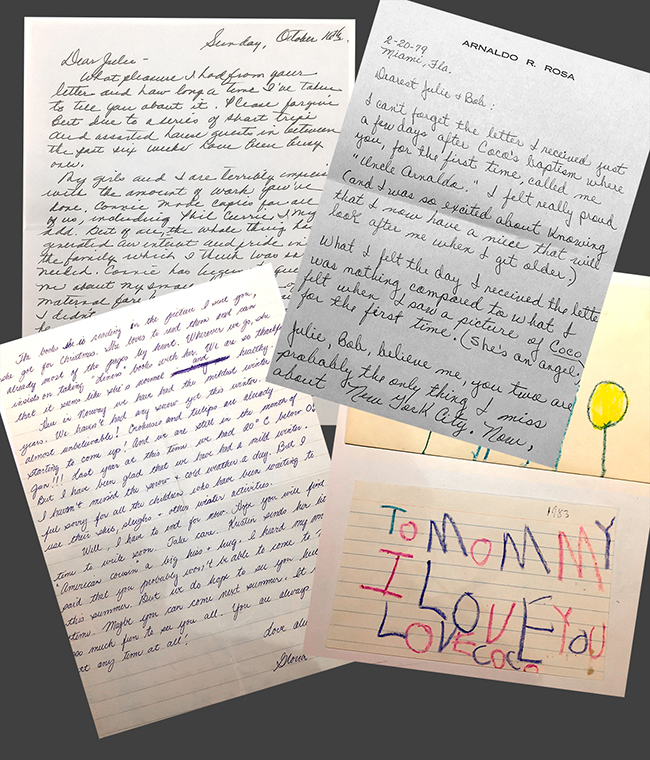 Sunday, October 16th.
Dear Julie -
What pleasure I had from your
letter and how long a time I've taken
to tell you about it. Please forgive
But due to a series of short trips
and assorted house guests in between
the past six weeks have been busy
ones.
My girls and I are terribly impress
with the amount of work you've
done. Connie made copies for all
of us, including Phil Currie & my
Best of all, the whole thing has
generated an interest and pride in
the family which I think was
needed. Connie has begun
me about my
maternal
I didn't
ARNALDO R. ROSA
2-20-79
Miami, Fla.
Dearest Julie & Bob:
I can't forget the letter I received just
a few days after Coco's baptism where
you, for the first time, called me
"Uncle Arnaldo." I felt really proud
(and I was so excited about knowing
that I now have a niece that will
look after me when I get older.)
What I felt the day I received the lette
was nothing compared to what I
felt when I saw a picture of Coco
for the first time. (She's an angel;
Julie, Bob, believe me, you two are
probably the only thing I miss
about New York City. Now,
The books she is reading in the picture I send you,
she got for Christmas. She loves to read them and can
already most of the pages by heart. Wherever we go, she
insists on taking "dinner" books with her. We are so thankful
that it seems like she's normal and healthy.
Here in Norway we have had the mildest winter
years. We haven't had any snow yet this winter
almost unbelievable! Crokuses and tulips are already
starting to come up! And we are still in the month of
Jan!!! Last year at this time we had 20°C below 0.
But I have been glad that we have had a mild winter.
I haven't missed the snow + cold weather a day. But I
feel sorry for all the children who have been waiting to
use their skis, sleighs + other winter activities.
Well, I have to end for now. Hope you will find
time to write soon. Take care. Kristin sends her
"American cousin" a big kiss + hug. I heard my
said that you probably won't be able to come to
this summer. But we do hope to see you
time. Maybe you can come next summer. It
so much fun to see you all. You are always
at any time at all!
Love
1983
TO MOMMY
I LOVE YOU
LOVE
COCO